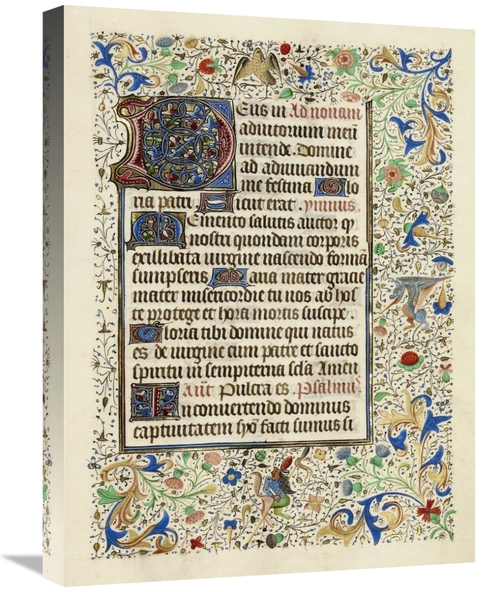 Deus in Ad nonam
adiutorium meū
intende. Domine
ad adiuuandum
me festina Glo
ria patri Sicut erat. ymnus.
Memento salutis auctor q̄
nostri quondam corporis
ex illibata uirgine nascendo formā
sumpseris Maria mater gracie
mater misericordie tu nos ab hos
te protege et hora mortis suscipe
Gloria tibi domine qui natus
es de uirgine cum patre et sancto
spiritu in sempiterna sc̄la Amen
Añt Pulcra es. Psalmus
In conuertendo dominus
captiuitatem syō facti sumus si